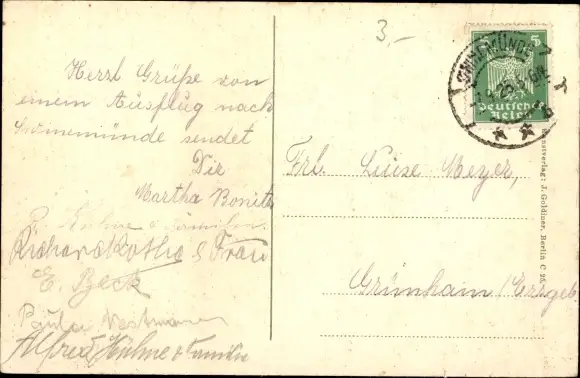 Herzl Grüße von
einem Ausflug nach
Swinemünde sendet
Dir
Martha Bonith
P. Kühne u Familie.
Richard Kothe & Frau
E. Beck
Paula
Alfred Kühne & Familie
3,-
SWINEMÜNDE
5
Deutsches
Reich
Frl. Luise Meyer,
Grünhain / Erzgeb
Kunstverlag: J. Goldiner, Berlin C 25